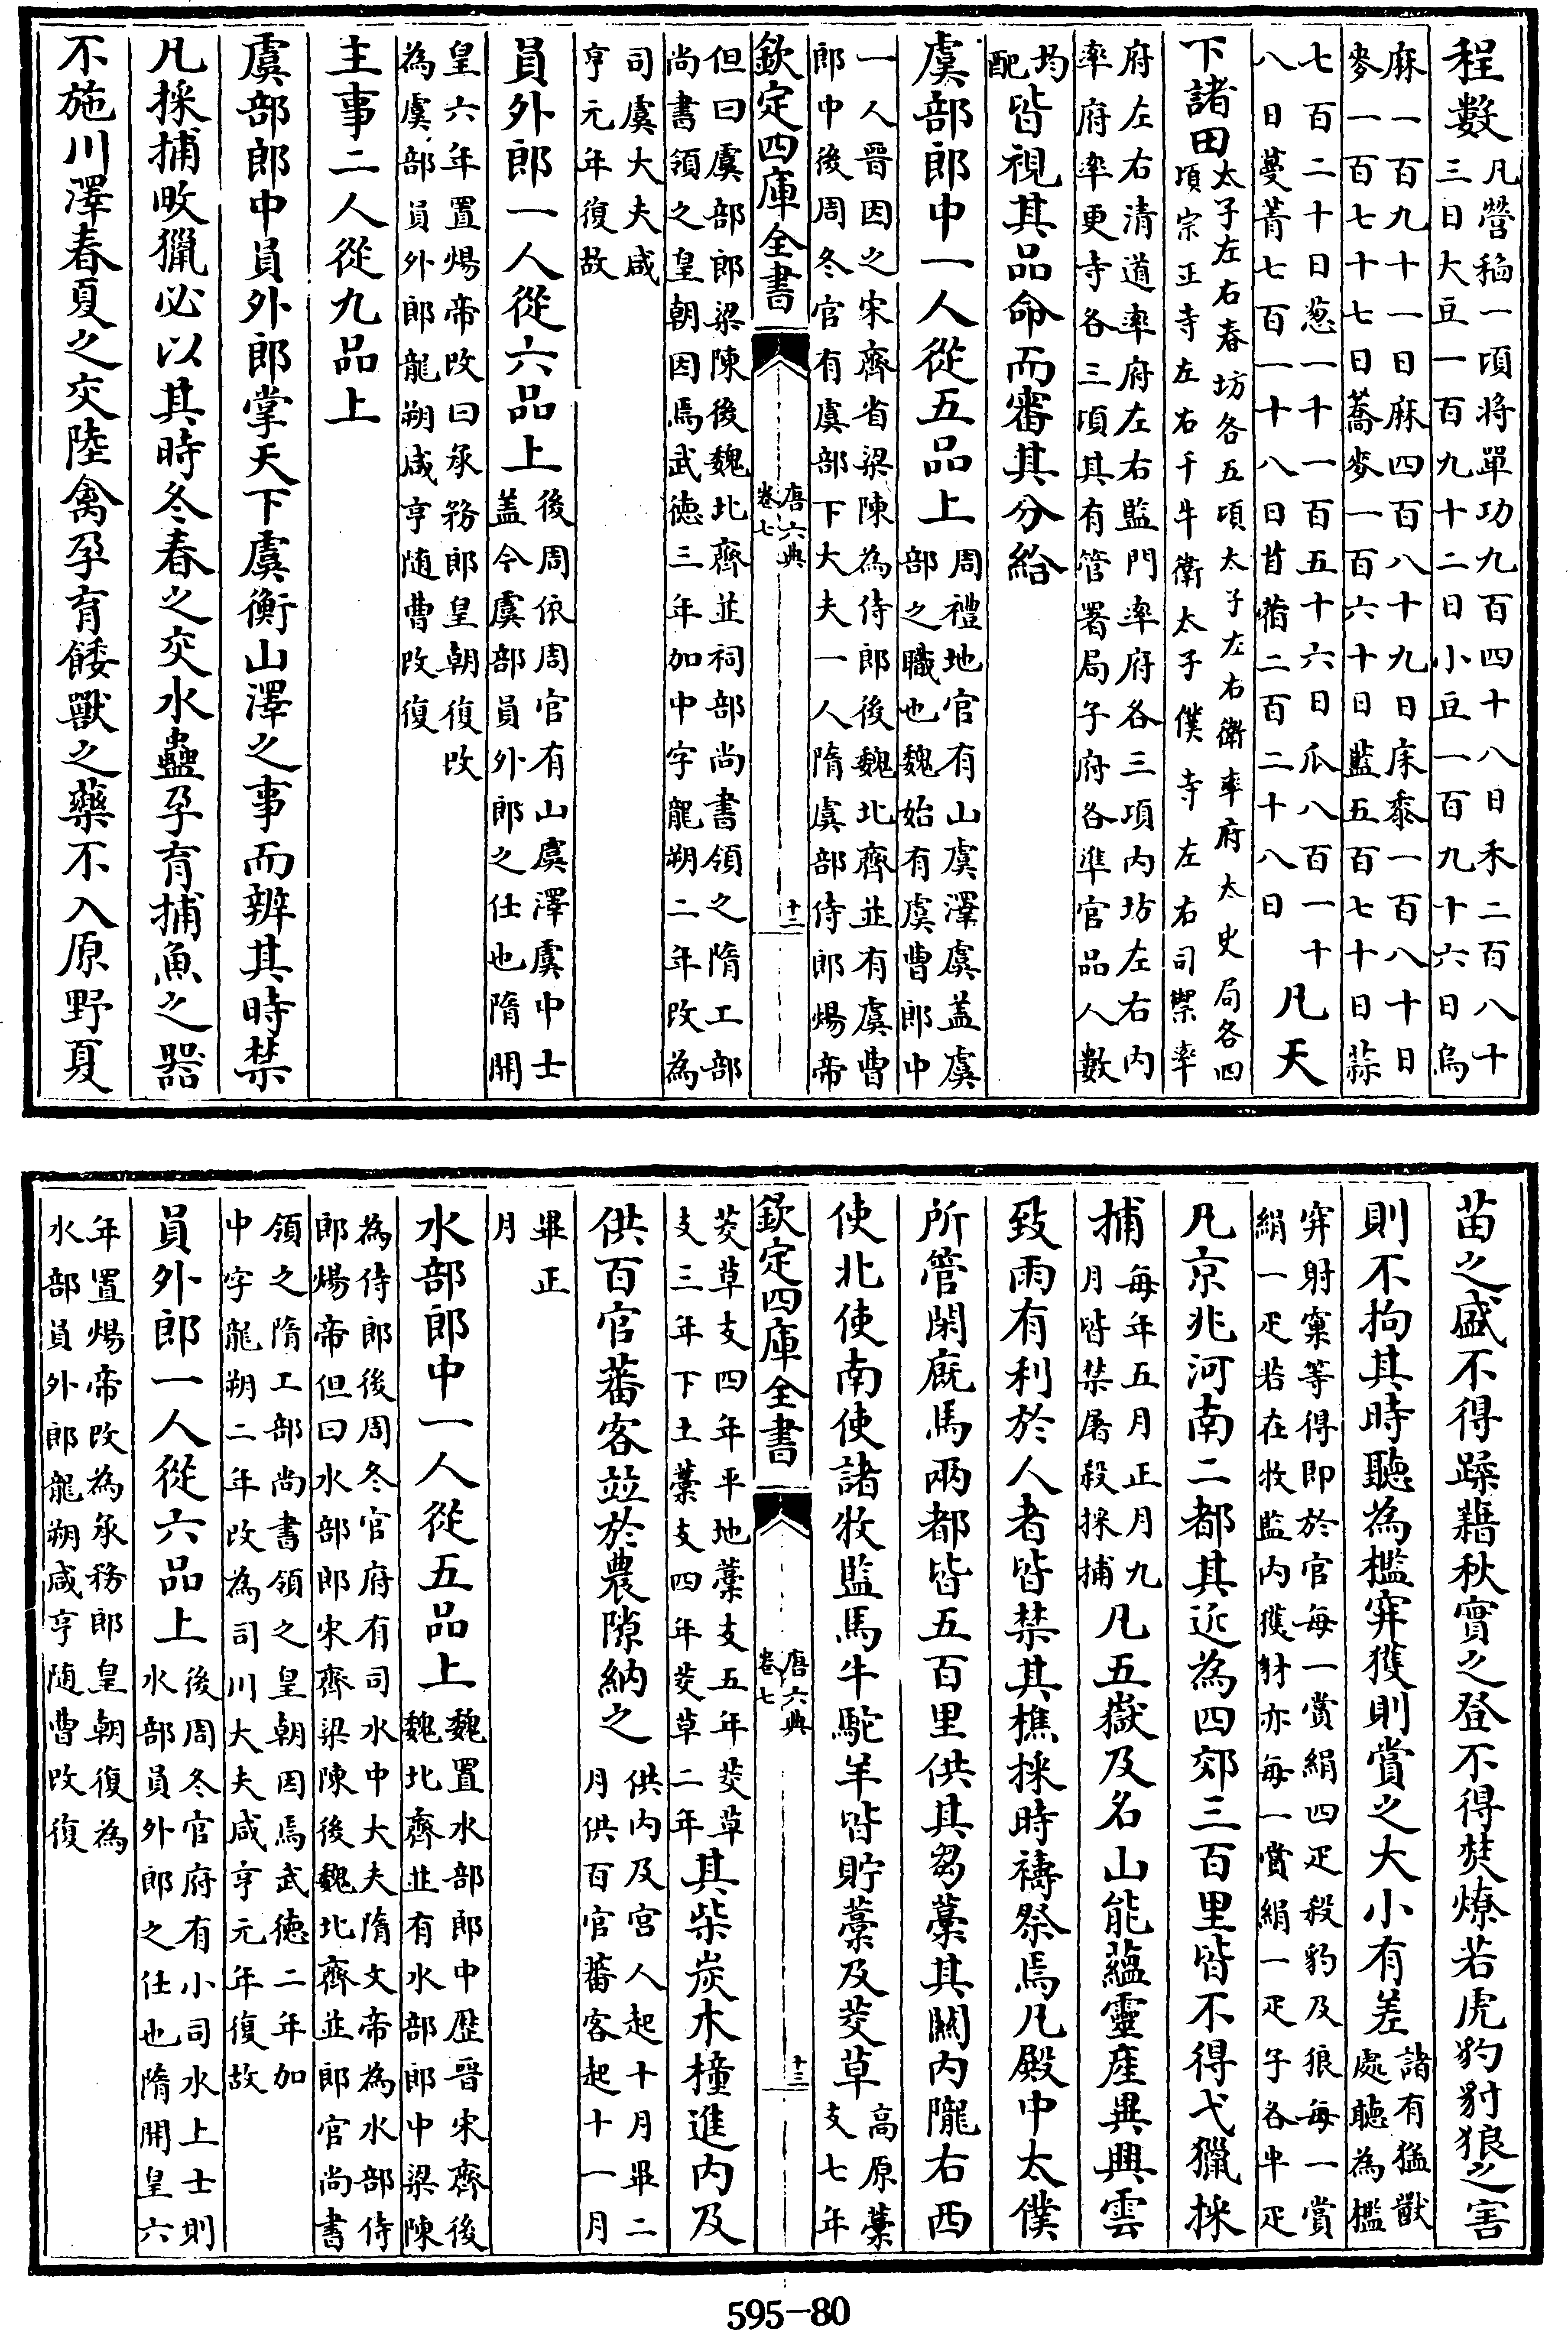 程數凡營稻一頃將單功九百四十八日禾二百八十三日大豆一百九十二日小豆一百九十六日烏
麻一百九十一日麻四百八十九日床黍一百八十日麥一百七十七日蕎麥一百六十日藍五百七十日蒜
七百二十日葱一千一百五十六日瓜八百一十八日蔓菁七百一十八日苜蓿二百二十八日凡天
下諸田太子左右春坊各五頃太子左右衛率府太史局各四頃宗正寺左右千牛衛太子僕寺左右司禦率
府左右清道率府左右監門率府各三頃内坊左右内率府率更寺各三頃其有管署局子府各準官品人數
均配皆視其品命而審其分給
虞部郎中一人從五品上周禮地官有山虞澤虞盖虞部之職也魏始有虞曹郎中
一人晉因之宋齊省梁陳為侍郎後魏北齊並有虞曹郎中後周冬官有虞部下大夫一人隋虞部侍郎煬帝
欽定四庫全書
唐六典
卷七
十二
但曰虞部郎梁陳後魏北齊並祠部尚書領之隋工部尚書領之皇朝因焉武徳三年加中字龍朔二年改為
司虞大夫咸亨元年復故
員外郎一人從六品上後周依周官有山虞澤虞中士盖今虞部員外郎之任也隋開
皇六年置煬帝改曰承務郎皇朝復改為虞部員外郎龍朔咸亨随曹改復
主事二人從九品上
虞部郎中員外郎掌天下虞衡山澤之事而辨其時禁
凡採捕畋獵必以其時冬春之交水蟲孕育捕魚之器
不施川澤春夏之交陸禽孕育餧獸之藥不入原野夏
苗之盛不得蹂藉秋實之登不得焚燎若虎豹豺狼之害
則不拘其時聽為檻穽獲則賞之大小有差諸有猛獸處聽為檻
穽射窠等得即於官每一賞絹四疋殺豹及狼每一賞絹一疋若在牧監内獲豺亦每一賞絹一疋子各半疋
凡京兆河南二都其近為四郊三百里皆不得弋獵採
捕每年五月正月九月皆禁屠殺採捕凡五嶽及名山能藴靈産異興雲
致雨有利於人者皆禁其樵採時禱祭焉凡殿中太僕
所管閑廐馬兩都皆五百里供其芻藁其關内隴右西
使北使南使諸牧監馬牛駝羊皆貯藁及茭草高原藁支七年
欽定四庫全書
唐六典
卷七
十三
茭草支四年平地藁支五年茭草支三年下土藁支四年茭草二年其柴炭木橦進内及
供百官蕃客並於農隙納之供内及宫人起十月畢二月供百官蕃客起十一月
畢正月
水部郎中一人從五品上魏置水部郎中歴晉宋齊後魏北齊並有水部郎中梁陳
為侍郎後周冬官府有司水中大夫隋文帝為水部侍郎煬帝但曰水部郎宋齊梁陳後魏北齊並郎官尚書
領之隋工部尚書領之皇朝因焉武徳二年加中字龍朔二年改為司川大夫咸亨元年復故
員外郎一人從六品上後周冬官府有小司水上士則水部員外郎之任也隋開皇六
年置煬帝改為承務郎皇朝復為水部員外郎龍朔咸亨随曹改復
595-80